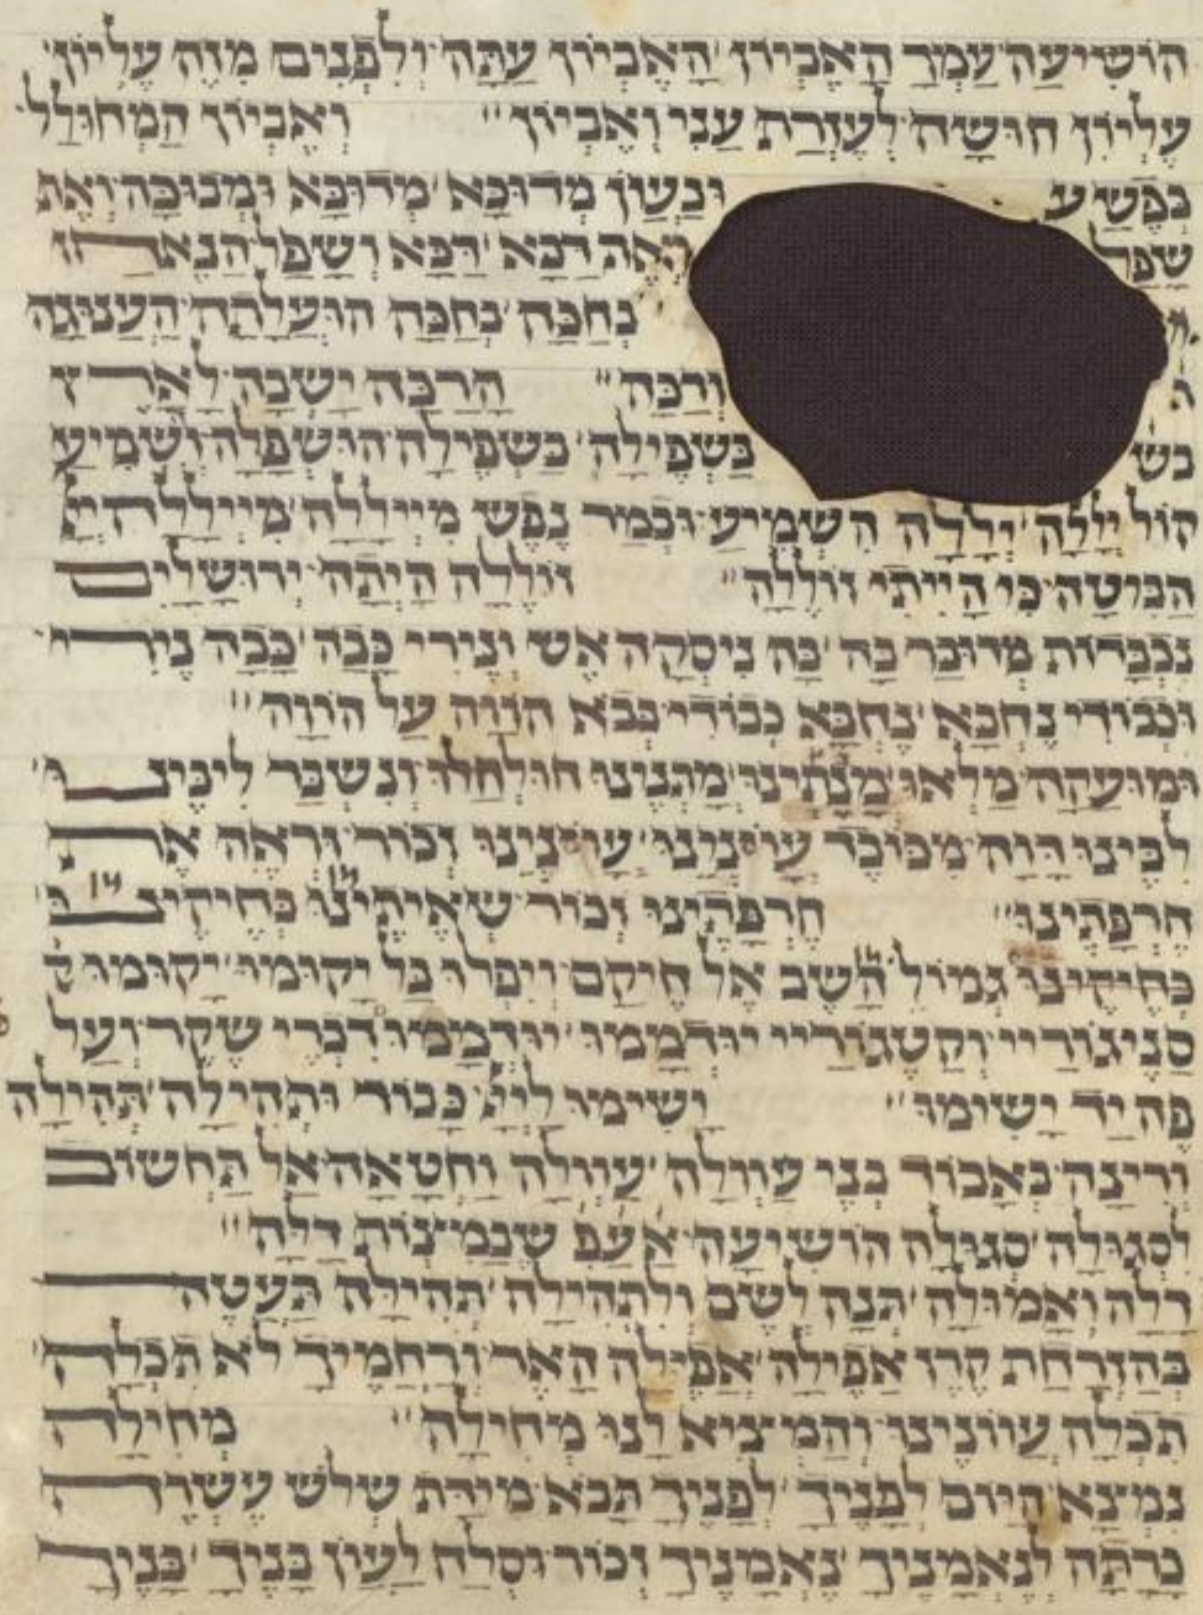 הוֹשִׁיעָה עַמְּךָ הָאֶבְיוֹן הָאֶבְיוֹן עַתָּה וְלִפְנִים מִזֶּה עֶלְיוֹן
עֶלְיוֹן חוּשָׁה לְעֶזְרַת עָנִי וְאֶבְיוֹן וְאֶבְיוֹן הַמְחוּלָל
בְּפֶשַׁע וּבְעָוֹן מְדוּכָּא מְדוּכָּא וּמְבוּכָּה וְאֶת
שְׁפַל דַכָּא דַּכָּא וְשָׁפָל
נְחַכֶּה נְחַכֶּה הוּעֲלָתָה הָעֲנוּגָה
וְרַכָּה הָרַכָּה יָשְׁבָה לָאָרֶץ
בש בַּשְּׁפֵילָה בַּשְּׁפֵילָה הוּשְׁפָּלָה וְשָׁמִיעַ
קוֹל יְלָלָה יְלָלָה הִשְׁמִיעַ וּבְמַר נֶפֶשׁ מְיילָלָה מְיילָלָה
הַבִּיטָה כִּי הָיִיתִי זוֹלֵלָה זוֹלֵלָה הָיְתָה יְרוּשָׁלַיִם
נִכְבָּדוֹת מְדוּבָּר בָּהּ בָּהּ נִיסְּקָה אֵשׁ וְנֵירִי כָּבָה כָּבָה נֵירִי
וּכְבוֹדִי נֶחְבָּא נֶחְבָּא כְבוֹדִי בְּבֹא הוֹוָה עַל הוֹוָה
וּמוּעָקָה מָלְאוּ מָתְנֵינוּ מָתְנֵינוּ חוּלְחֲלוּ וְנִשְׁבַּר לִיבֵּינוּ
לִבֵּינוּ דָּוֶה מִכּוֹבֶד עֲווֹנֵינוּ עֲווֹנֵינוּ זְכוֹר וּרְאֵה אֶת
חֶרְפָּתֵינוּ חֶרְפָּתֵינוּ זְכוֹר שְׂאֵיתֵינוּ בְּחֵיקֵינוּ
בְּחֵיקֵינוּ גְּמוּל הָשֵׁב אֶל חֵיקָם וְיִפְּלוּ בַל יָקוּמוּ יָקוּמוּ
סַנֵיגוֹרַיי וְקַטֵּגוֹרַיי יוּדְמָמוּ יוּדְמָמוּ דִבְרֵי שֶׁקֶר וְעַל
פֶּה יַד יָשִׂימוּ וְיָשִׂימוּ לַייָ כָּבוֹד וּתְהִילָה תְּהִילָה
וְרִינָה כֶּאֱבוֹד בְּנֵי עַוְולָה עַוְולָה וְחַטָּאָה אַל תַּחְשׂוֹם
לִסְגוּלָּה סְגוּלָּה הוֹשִׁיעָה אַעַפּ שֶׁבְּמִצְוֹת דַּלָּה
דַּלָּה וְאֻמְלָלָה תְּנָה לְשֵׁם וְלִתְהִילָה תְּהִילָּה תַּעֲטֶה
בְּהַזְרָחַת קֶרֶן אֲפֵילָה אֲפֵילָה הָאֵר וְרַחֲמֶיךָ לֹא תִכְלָה
תְּכַלֶּה עֲווֹנֵינוּ וְהַמְצִיא לָנוּ מְחִילָה מְחִילָה
נִמְצָא הַיּוֹם לְפָנֶיךָ לְפָנֶיךָ תָּבֹא מִידַּת שְׁלֹשׁ עֶשְׂרֵה
כָּרַתָּה לְנֶאֱמָנֶיךָ נֶאֱמָנֶיךָ זְכוֹר וּסְלַח לַעֲוֹן בָּנֶיךָ בָּנֶיךָ